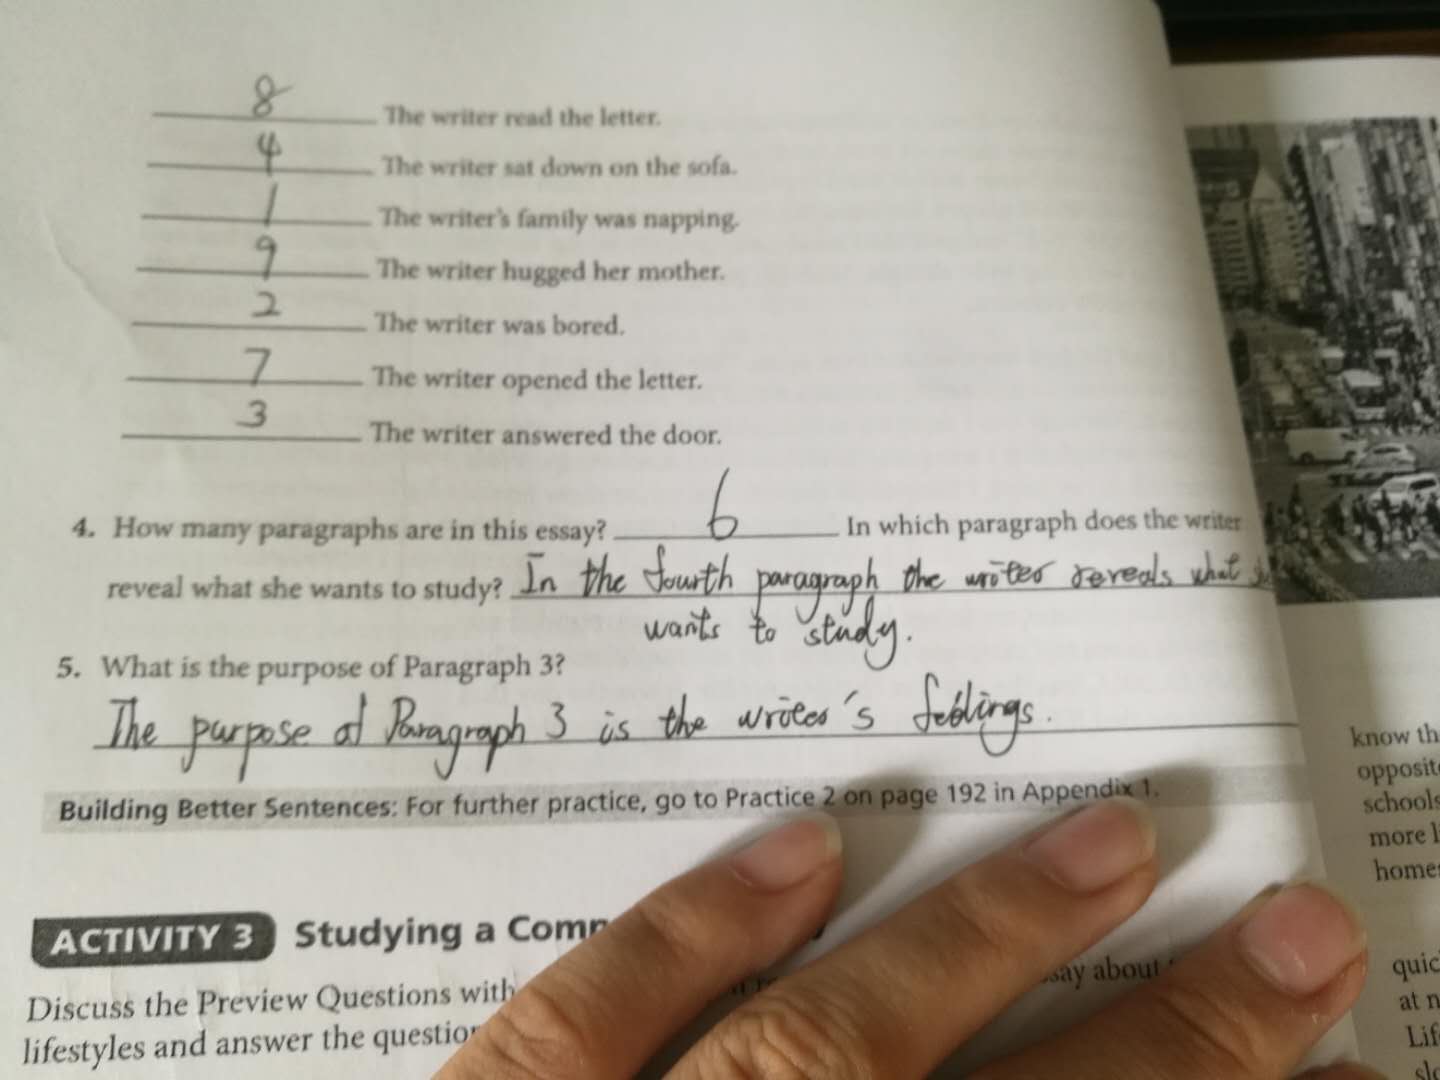 8 The writer read the letter.
4 The writer sat down on the sofa.
1 The writer's family was napping.
9 The writer hugged her mother.
2 The writer was bored.
7 The writer opened the letter.
3 The writer answered the door.
4. How many paragraphs are in this essay? 6 In which paragraph does the writer
reveal what she wants to study? In the fourth paragraph the writer reveals what
wants to study.
5. What is the purpose of Paragraph 3?
The purpose of Paragraph 3 is the writer's feelings.
Building Better Sentences: For further practice, go to Practice 2 on page 192 in Appendix 1.
ACTIVITY 3 Studying a
Discuss the Preview Questions with
about
lifestyles and answer the
know
schools
more
at